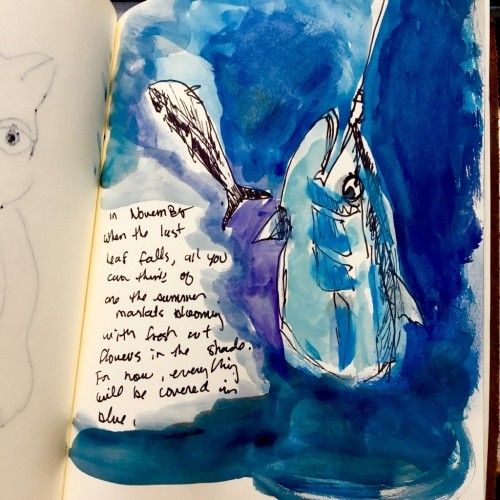 in November
when the last
leaf falls, all you
can think of
are the summer
markets blooming
with fresh cut
flowers in the shade.
For now, everything
will be covered in
blue.